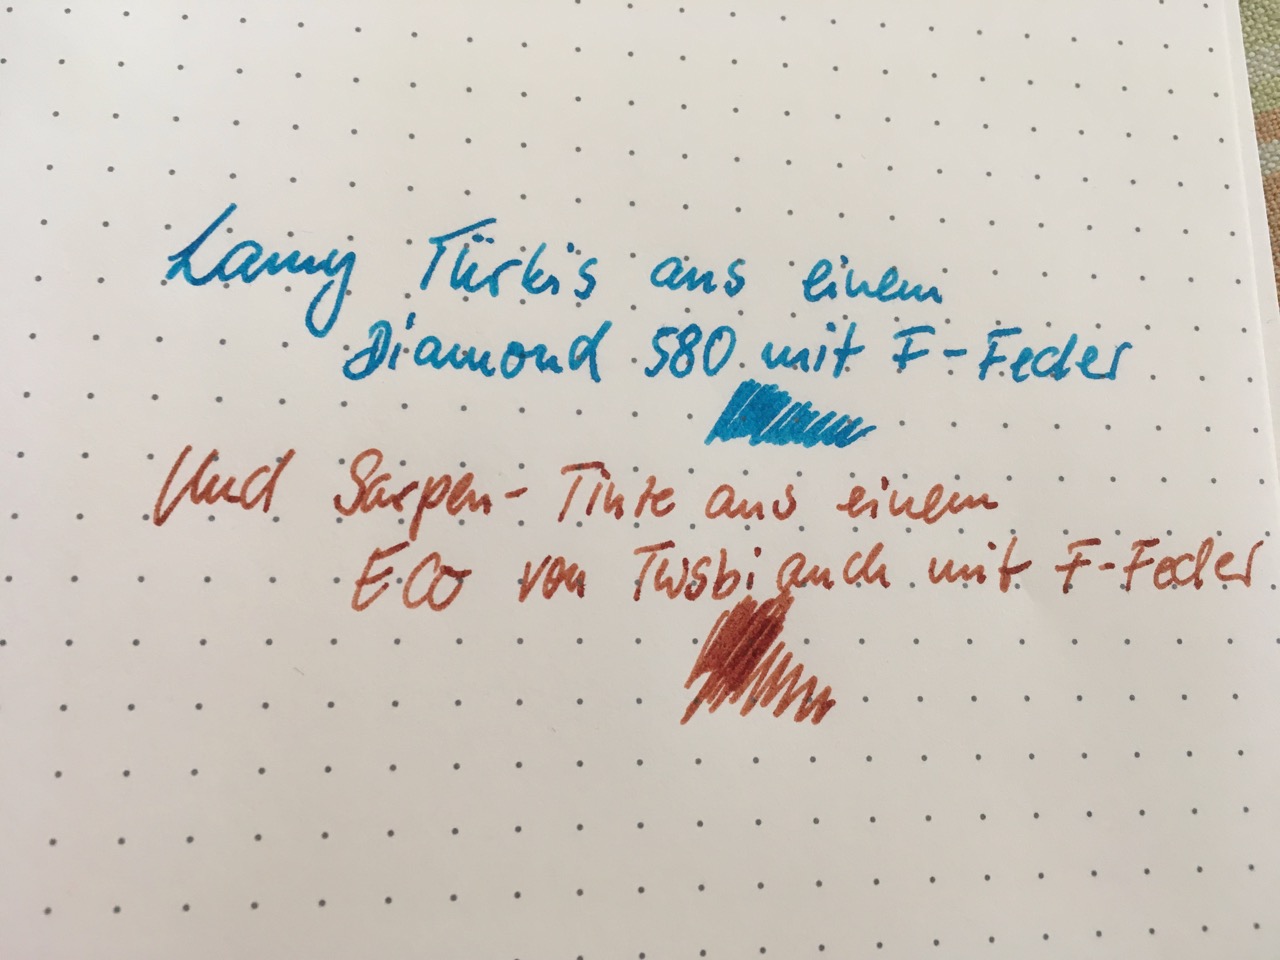 Lamy Türkis aus einem
Diamond 580 mit F-Feder
Und Sarpen-Tinte aus einem
ECO von Twsbi auch mit F-Feder